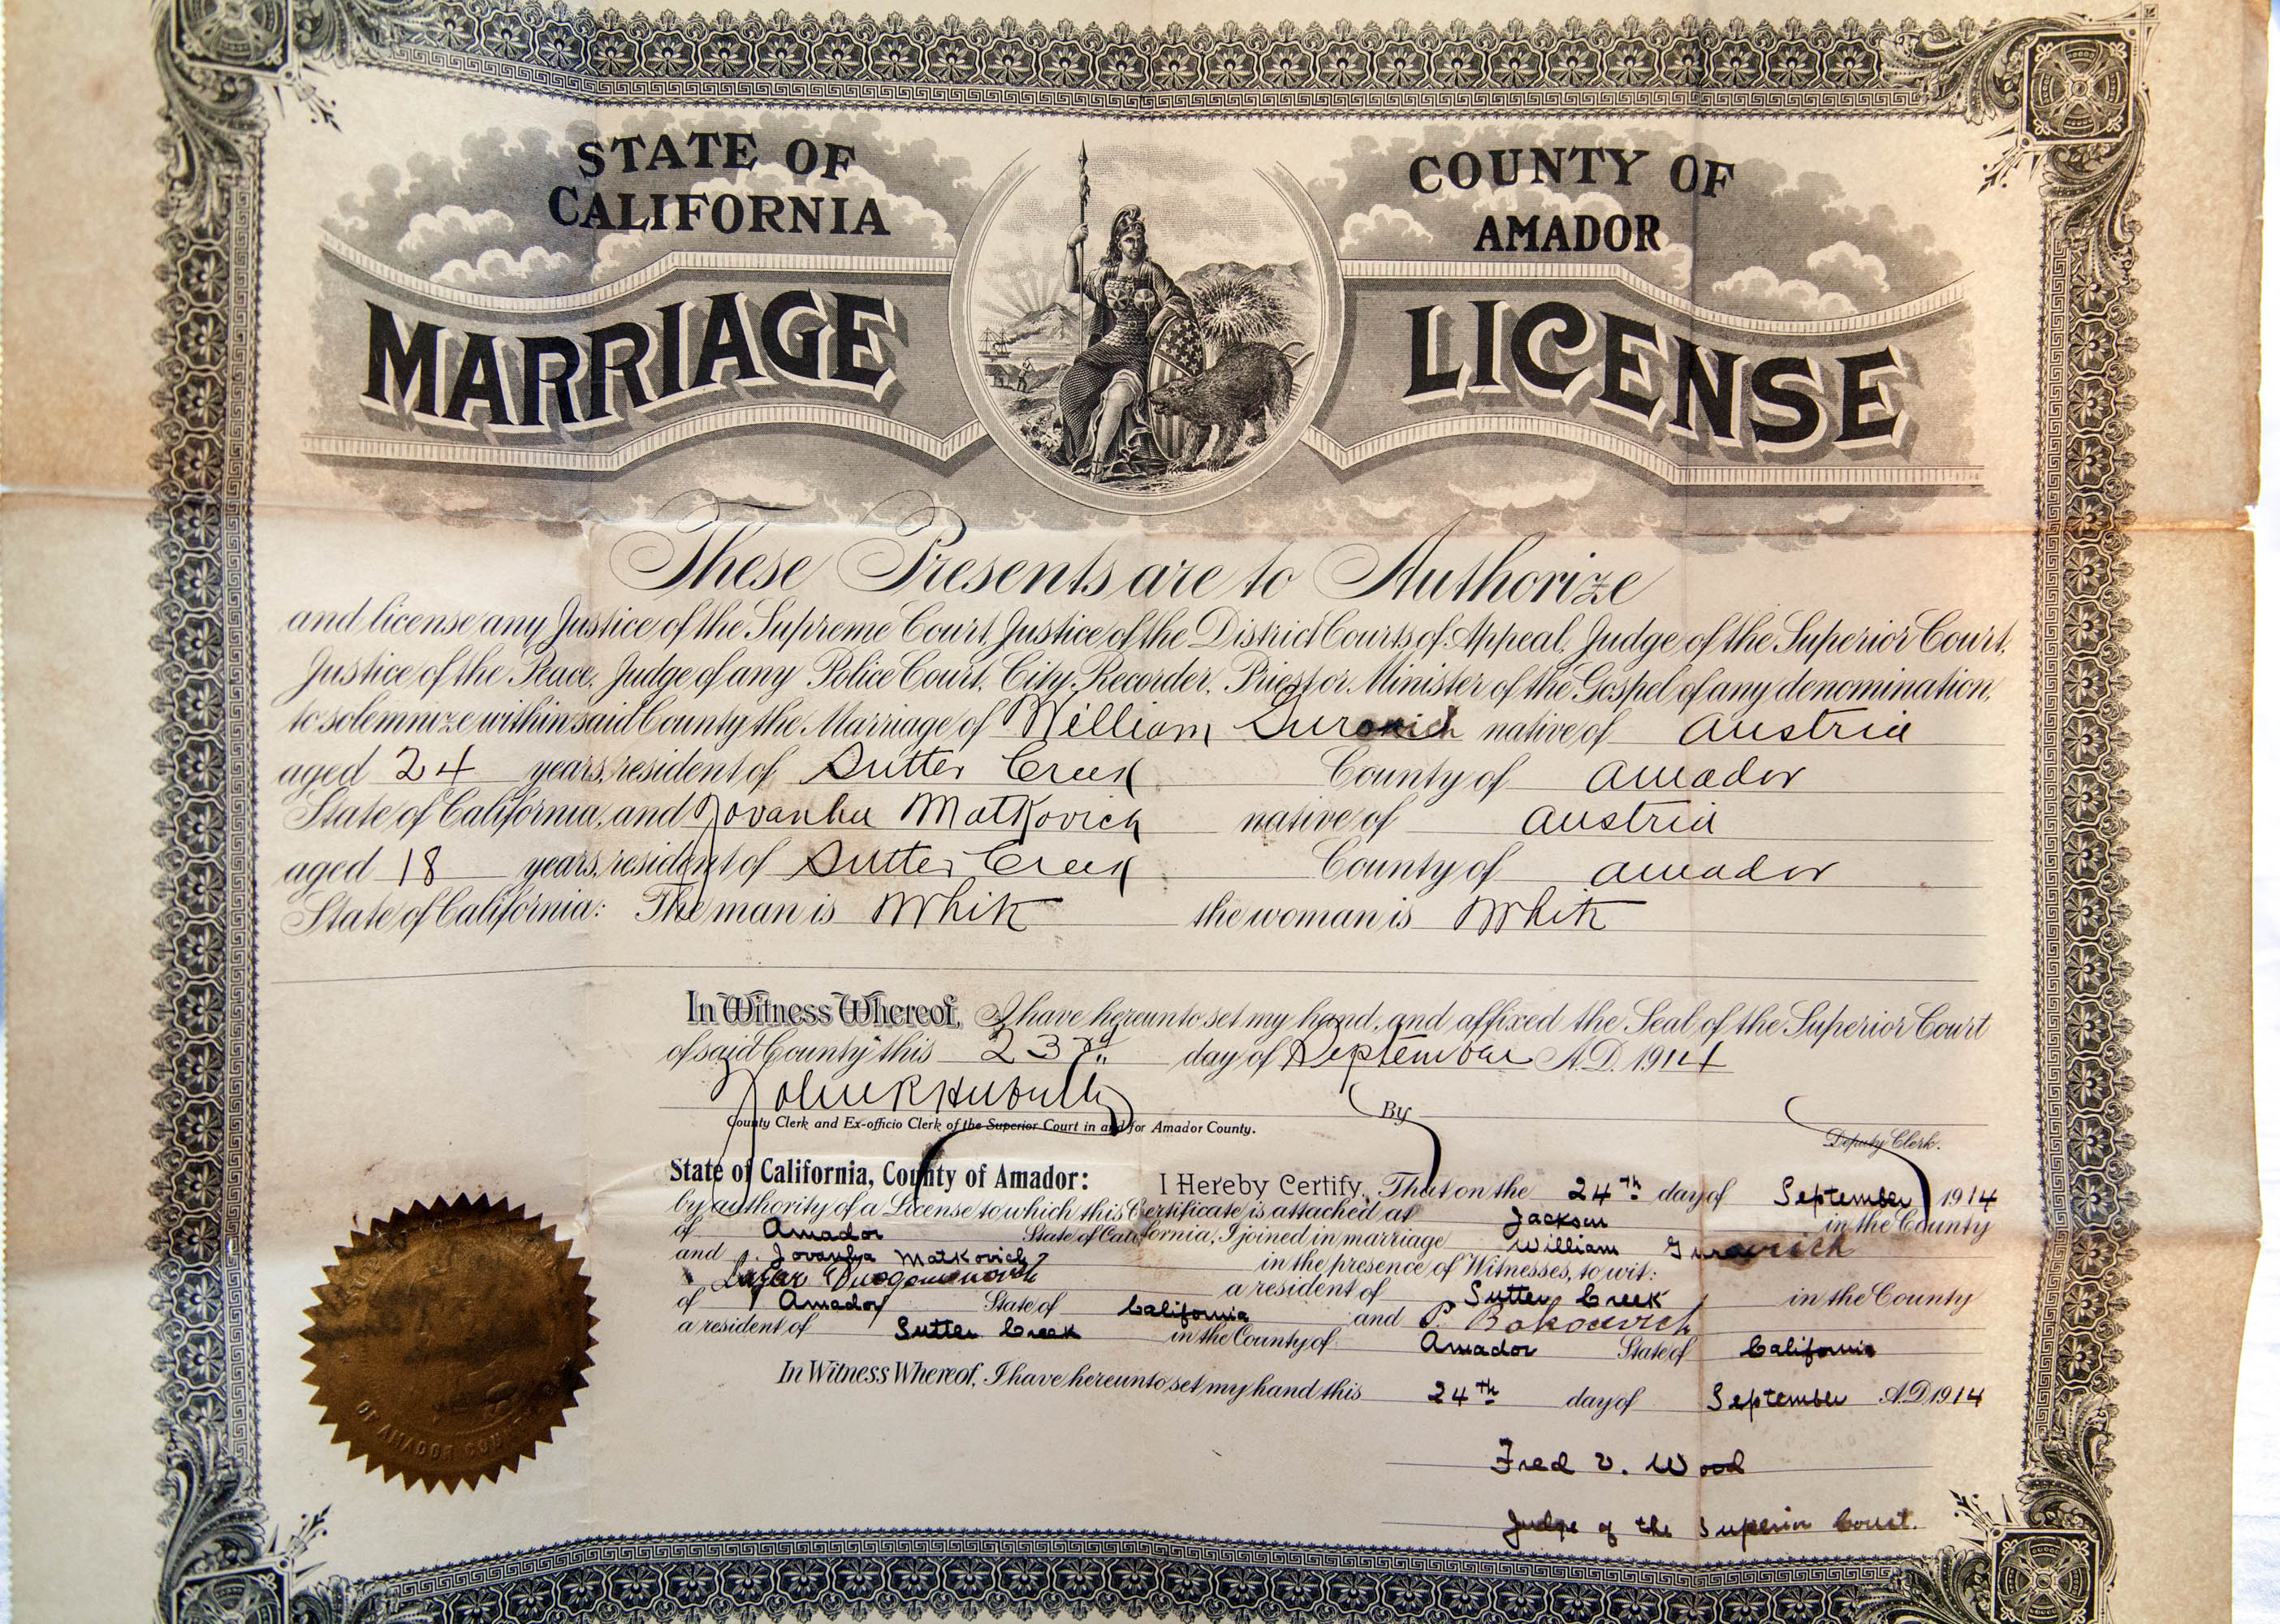 STATE OF
CALIFORNIA
COUNTY OF
AMADOR
MARRIAGE LICENSE
These Presents are to Authorize
and license any Justice of the Supreme Court, Justice of the District Courts of Appeal, Judge of the Superior Court,
Justice of the Peace, Judge of any Police Court, City Recorder, Priest or Minister of the Gospel of any denomination,
to solemnize within said County the Marriage of William native of Austria
aged 24 years, resident of Sutter Creek County of Amador
State of California, and Matkovich native of Austria
aged 18 years, resident of Sutter Creek County of Amador
State of California: The man is White the woman is White
In Witness Whereof, I have hereunto set my hand, and affixed the Seal of the Superior Court
of said County this 23rd day of September A.D. 1914
County Clerk and Ex-officio Clerk of the Superior Court in and for Amador County.
By
Deputy Clerk.
State of California, County of Amador: I Hereby Certify, That on the 24th day of September 1914
by authority of a License to which this Certificate is attached at Jackson in the County
of Amador State of California, I joined in marriage William
and Matkovich in the presence of Witnesses, to wit:
Lazar a resident of Sutter Creek in the County
of Amador State of California and P.
a resident of Sutter Creek in the County of Amador State of California
In Witness Whereof, I have hereunto set my hand this 24th day of September A.D. 1914
Fred V. Wood
Judge of the Superior Court.
OF AMADOR COUNTY